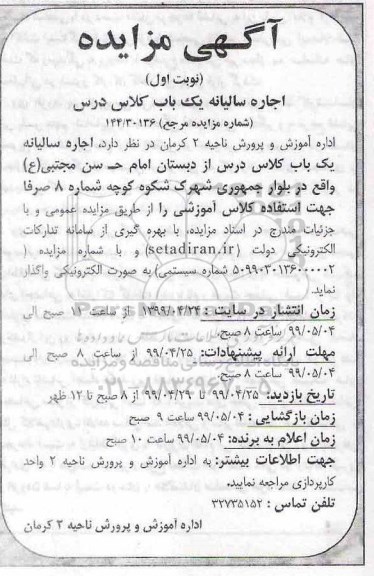 آگهی مزایده
(نوبت اول)
اجاره سالیانه یک باب کلاس درس
(شماره مزایده مرجع) ۱۴۴/۳۰۱۳۶
اداره آموزش و پرورش ناحیه ۲ کرمان در نظر دارد، اجاره سالیانه
یک باب کلاس درس از دبستان امام حسن مجتبی(ع)
واقع در بلوار جمهوری شهرک شکوه کوچه شماره ۸ صرفا
جهت استفاده کلاس آموزشی را از طریق مزایده عمومی و با
جزئیات مندرج در اسناد مزایده، با بهره گیری از سامانه تدارکات
الکترونیکی دولت (setadiran.ir) و با شماره مزایده (
۵۰۹۹۰۳۰۱۳۶۰۰۰۰۰۲ شماره سیستمی) به صورت الکترونیکی واگذار
نماید.
زمان انتشار در سایت : ۱۳۹۹/۰۴/۲۴ از ساعت ۱۱ صبح الی
۹۹/۰۵/۰۴ ساعت ۸ صبح.
مهلت ارائه پیشنهادات: ۹۹/۰۴/۲۵ از ساعت ۸ صبح الی
۹۹/۰۵/۰۴ ساعت ۸ صبح.
تاریخ بازدید: ۹۹/۰۴/۲۵ تا ۹۹/۰۴/۲۹ از ۸ صبح تا ۱۲ ظهر
زمان بازگشایی : ۹۹/۰۵/۰۴ ساعت ۹ صبح
زمان اعلام به برنده: ۹۹/۰۵/۰۴ ساعت ۱۰ صبح
جهت اطلاعات بیشتر: به اداره آموزش و پرورش ناحیه ۲ واحد
کارپردازی مراجعه نمایید.
تلفن تماس : ۳۲۷۳۵۱۵۲
اداره آموزش و پرورش ناحیه ۲ کرمان